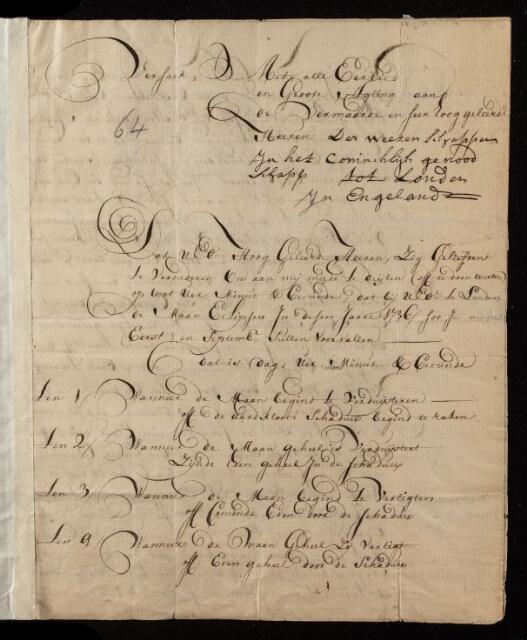 Versoek, Met alle Eerbied
en Groote agting aan
64
de Vermaarde en seer hoog geleerde
Heeren Der weetenschappen
Jn het Coninchlijk genood
Schapp tot Londen
Jn Engeland
Dat Hoog Geleerde Heeren, Zig Gelieft
te Vernederen Om aan mij mede te deijlen
op wat Uer Minut & Secunde dat bij te Londen
de Maan Eclipsen Jn desen Jaare 1736
Eerst en Septemb. Sullen Voorvallen
dat is Dag, Uer, Minut & Secunde
Ten 1 Wanneer de Maan begint te Verduijsteren
off de aardkloots Schaduw begind te raken
Ten 2 Wanneer de Maan geheel is Verduijstert
Zijnde Even geheel Jn de Schaduw
Ten 3 Wanneer de Maan begind te Verligten
off Comende Even voor de Schaduw
Ten 4 Wanneer de maan Geheel Zij Verligt
off Even geheel door de Schaduw